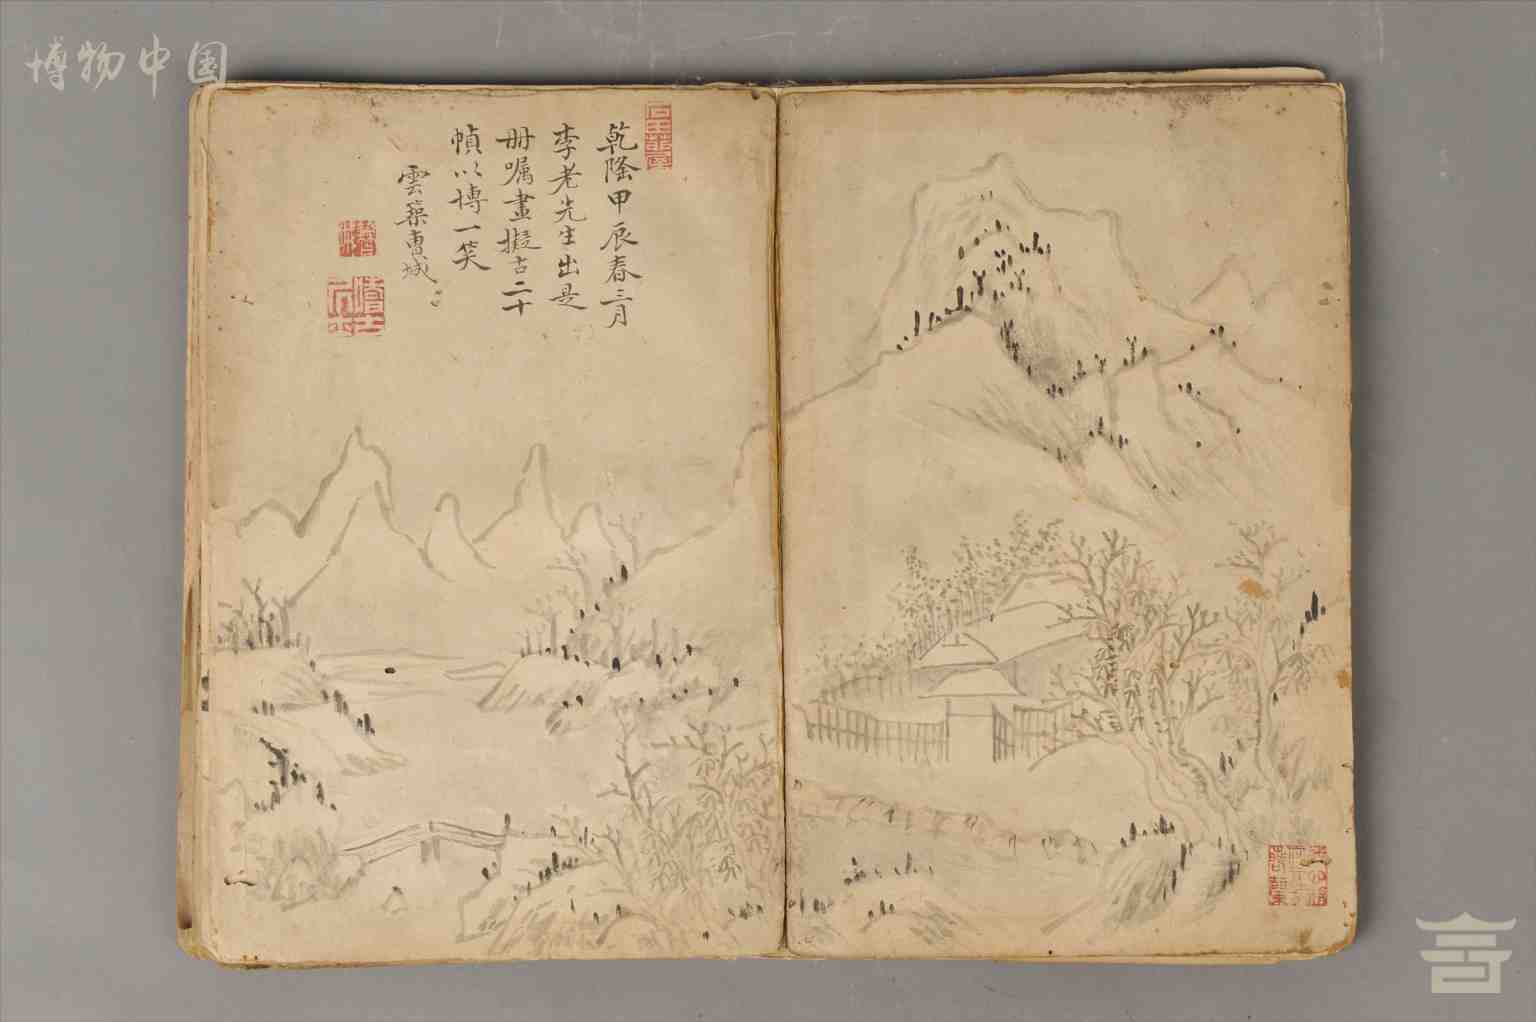 博物中国
乾隆甲辰春三月
李老先生出是
册嘱畫擬古二十
幀以博一笑
雲築曹城